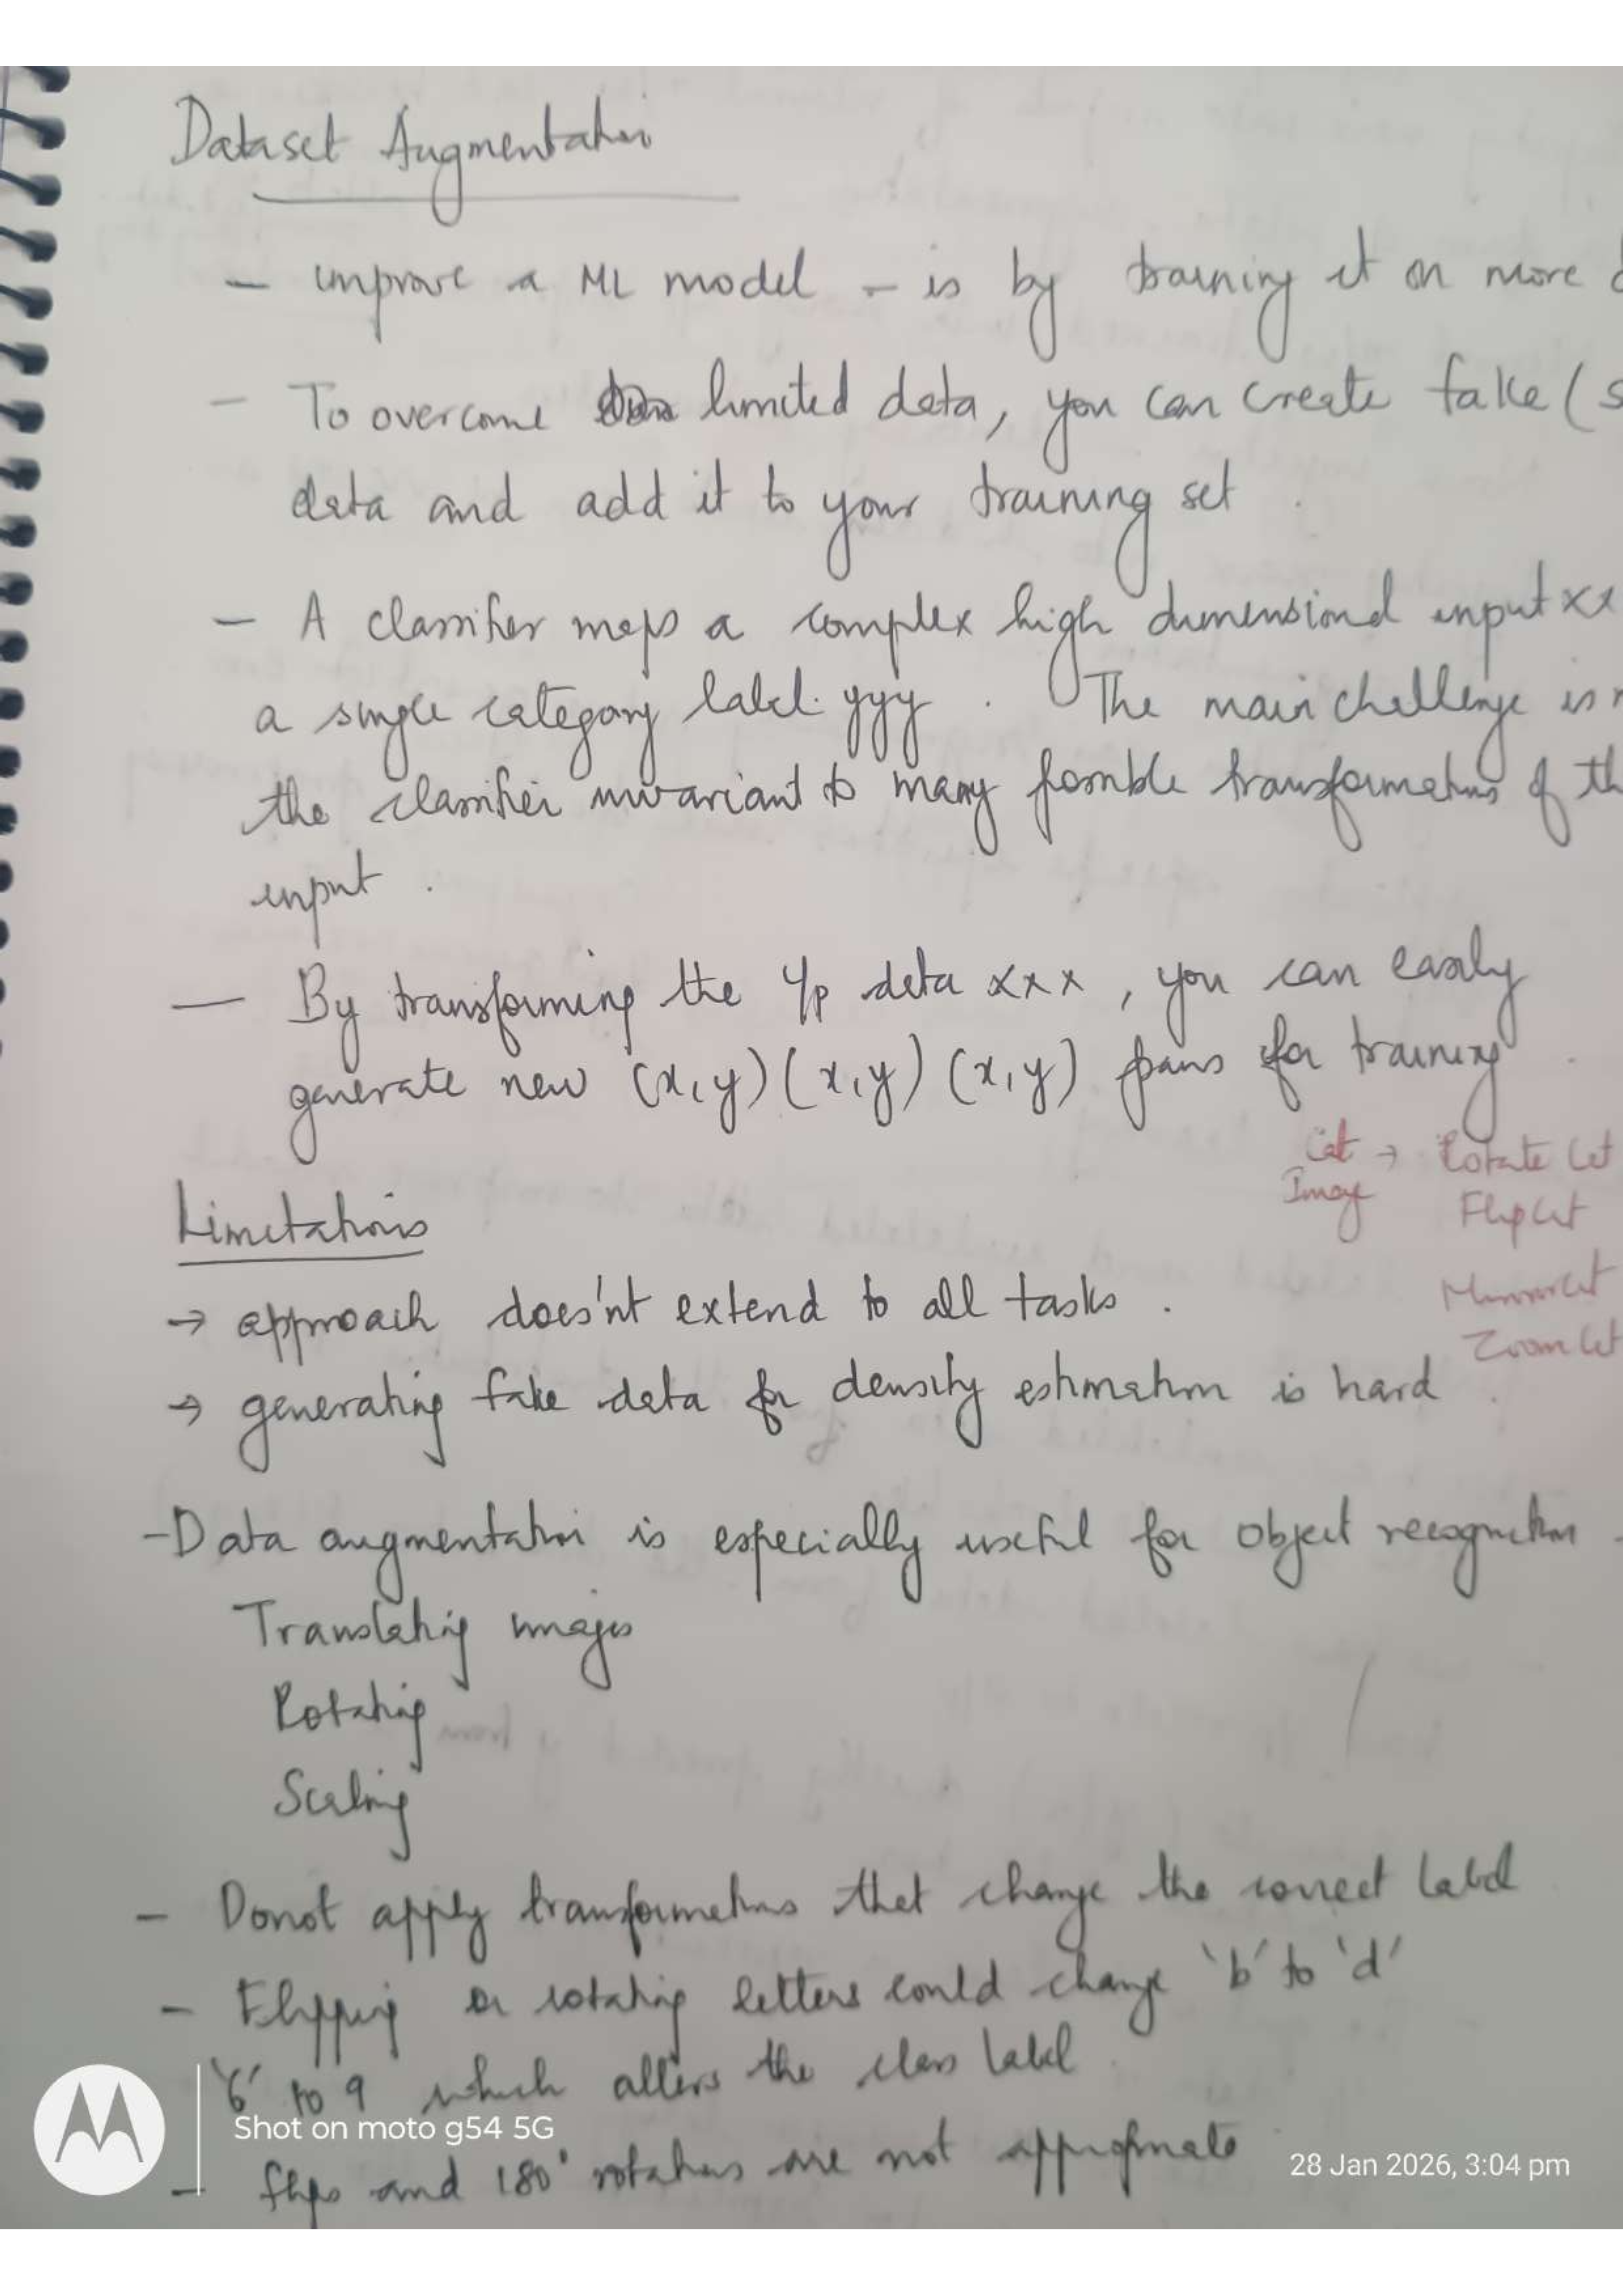 Dataset Augmentation
- improve a ML model - is by training it on more
- To overcome limited data, you can create fake (s
data and add it to your training set.
- A classifier maps a complex high dimensional input xx
a single category label yyy. The main challenge is
the classifier invariant to many possible transformations of th
input.
- By transforming the i/p data xxx, you can easily
generate new (x,y)(x,y)(x,y) pairs for training.
Cat → Rotate Cat
Image Flip Cat
Mirror Cat
Zoom Cat
Limitations
→ approach does'nt extend to all tasks.
→ generating fake data for density estimation is hard.
- Data augmentation is especially useful for object recognition.
Translating images
Rotating
Scaling
- Donot apply transformations that change the correct label
- Flipping or rotating letters could change 'b' to 'd'
'6' to 9 which alters the class label.
- flips and 180° rotations are not appropriate
Shot on moto g54 5G
28 Jan 2026, 3:04 pm